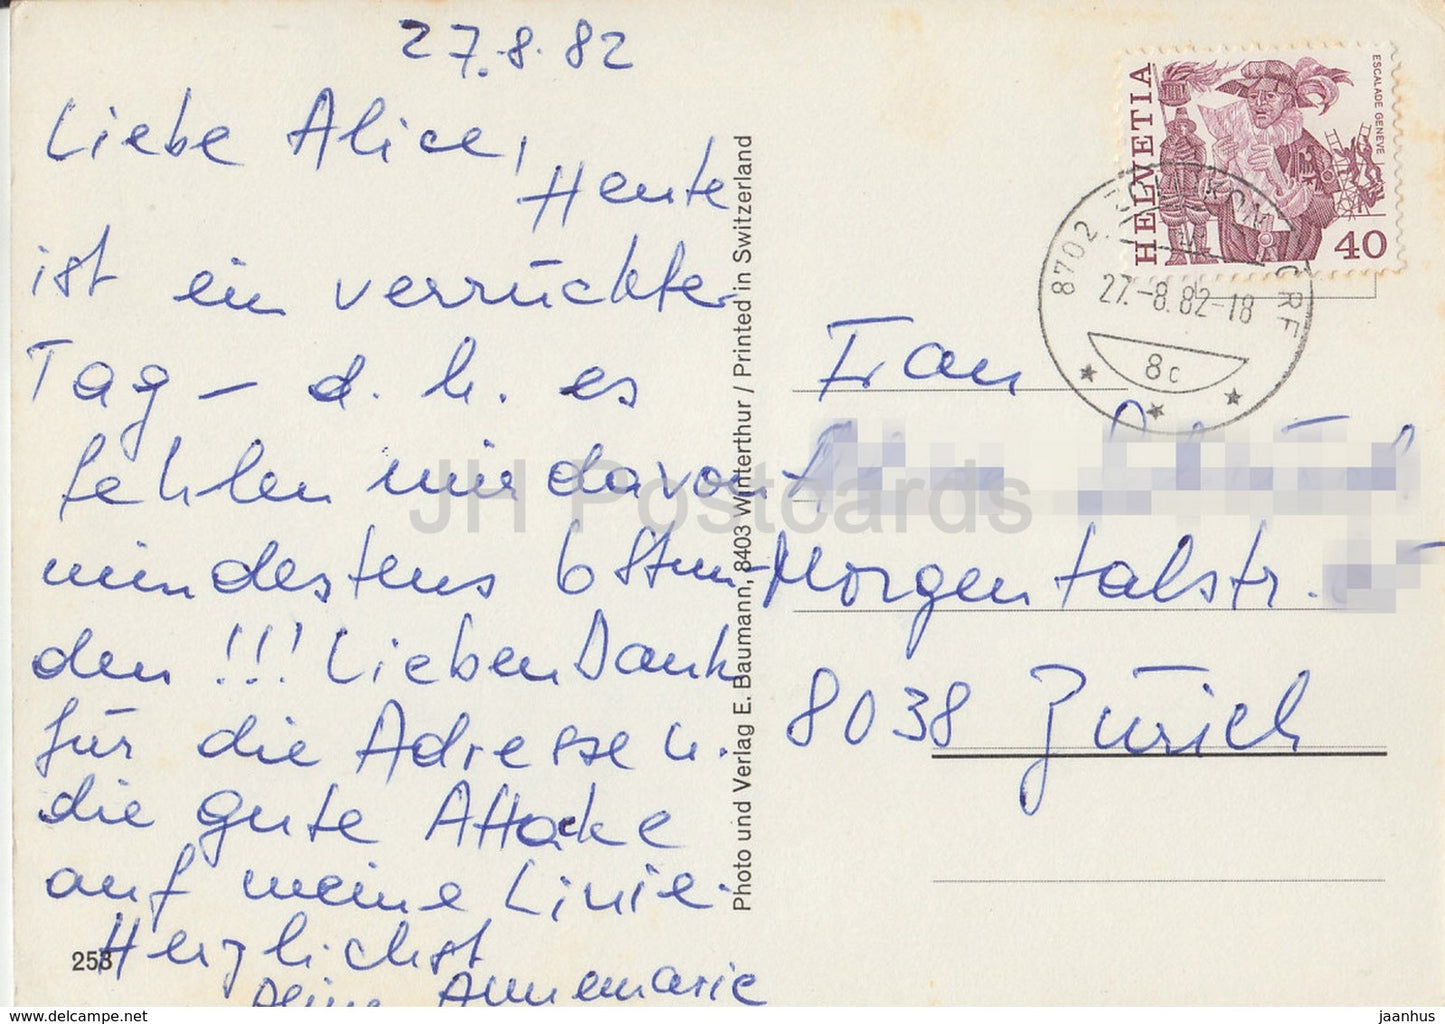 27.8.82
Liebe Alice,
Heute
ist ein verrückter
Tag – d. h. es
fehlen mir davon
mindestens 6 Stun-
den!!! Lieben Dank
für die Adresse u.
die gute Attacke
auf meine Linie.
Herzlichst
Deine Annemarie
253
Photo und Verlag E. Baumann, 8403 Winterthur / Printed in Switzerland
HELVETIA
ESCALADE GENEVE
40
8702 ZOLLIKON DORF
27.-8.82-18
8c
Frau
Morgentalstr.
8038 Zürich
JH Postcards
jh-postcard.store
jaanhus